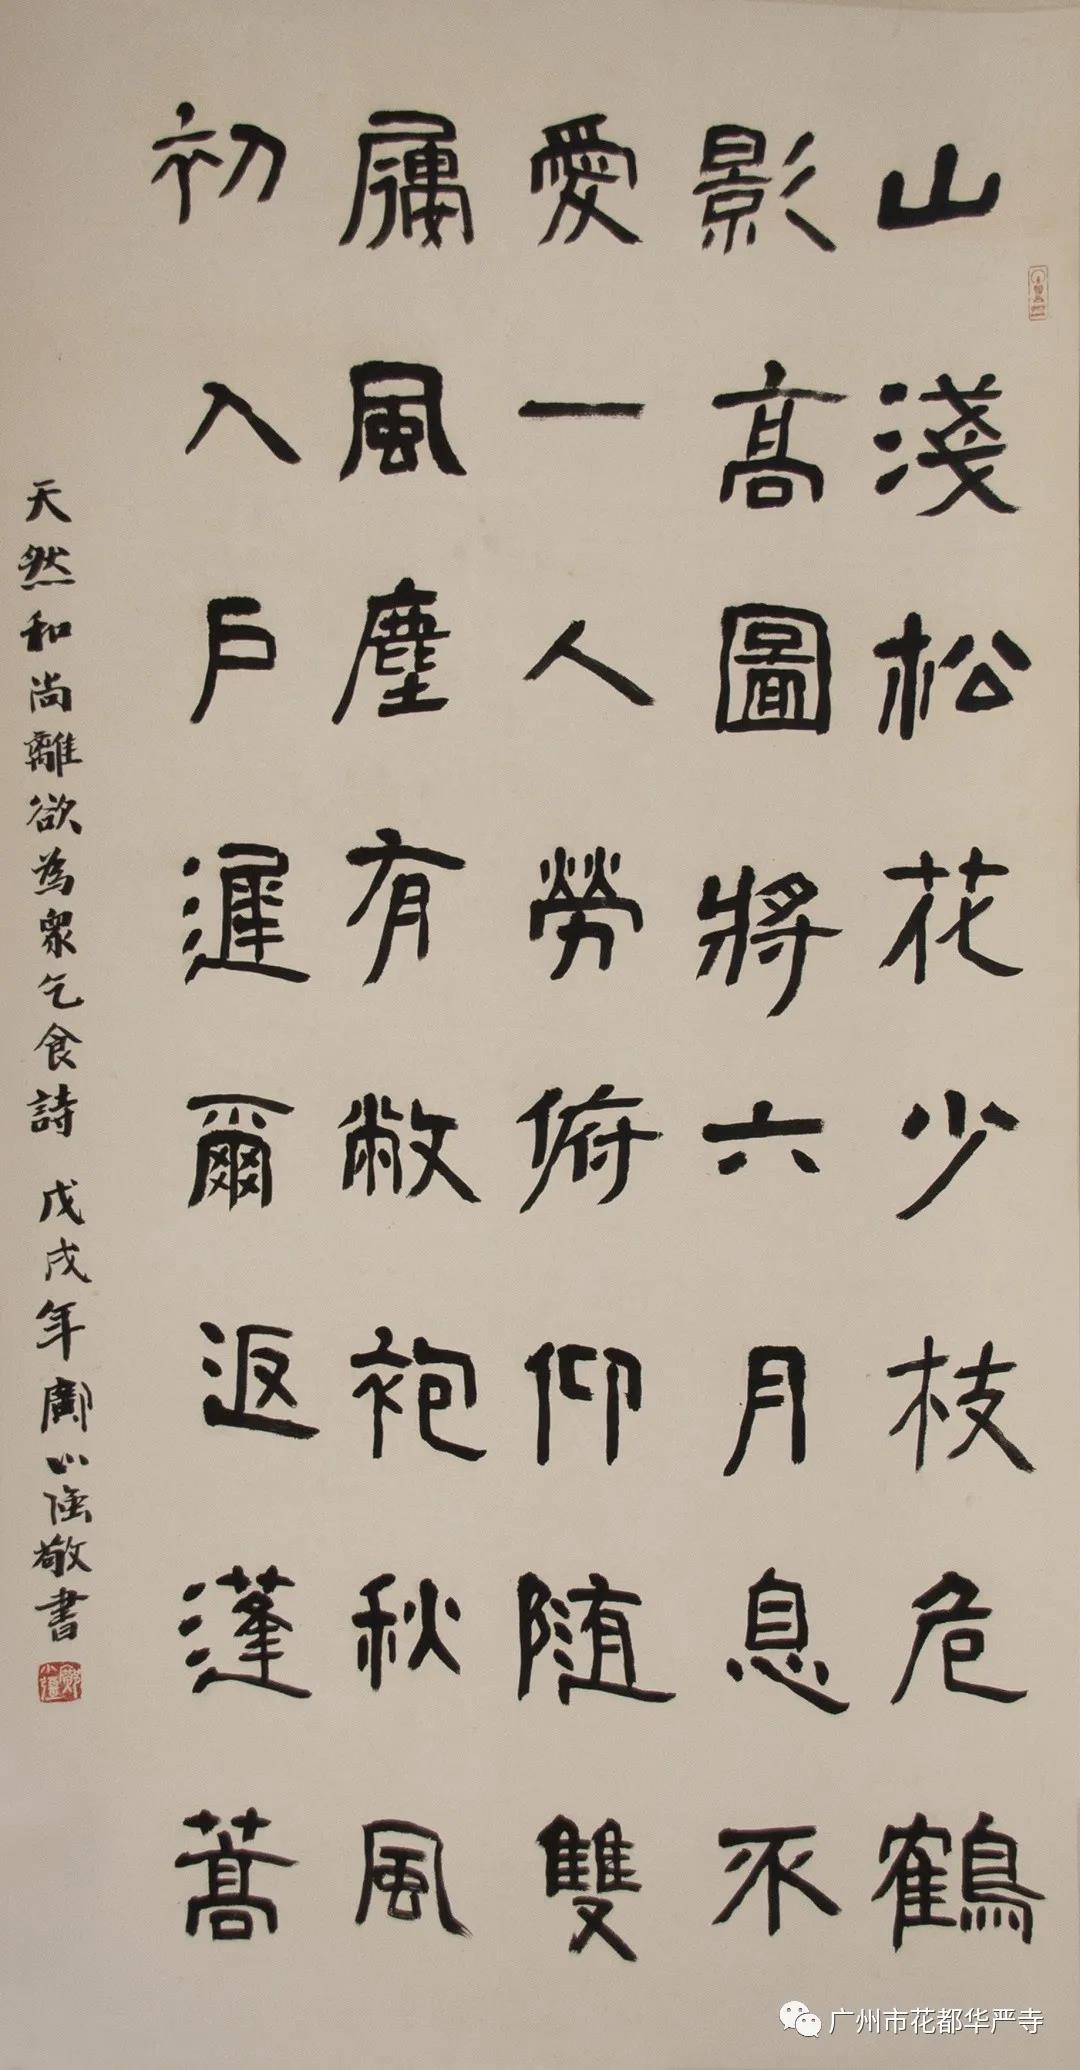 山淺松花少枝危鶴
影高圖將六月息不
愛一人勞俯仰隨雙
屨風塵有敝袍秋風
初入戶遲爾返蓬蒿
天然和尚離欲為衆乞食詩 戊戌年鄺小強敬書
鄺小彊
广州市花都华严寺